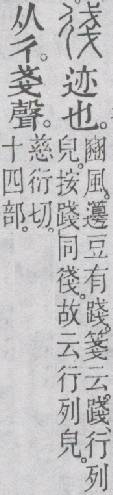 㣤迹也。豳風。籩豆有踐。箋云。踐、行列
皃。按踐同㣤。故云行列皃。
从彳。戔聲。慈衍切。
十四部。